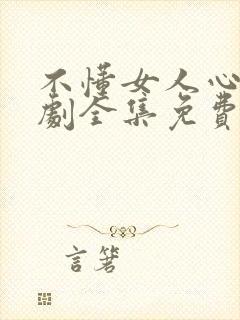 不懂女人心
劇全集免費
言箸